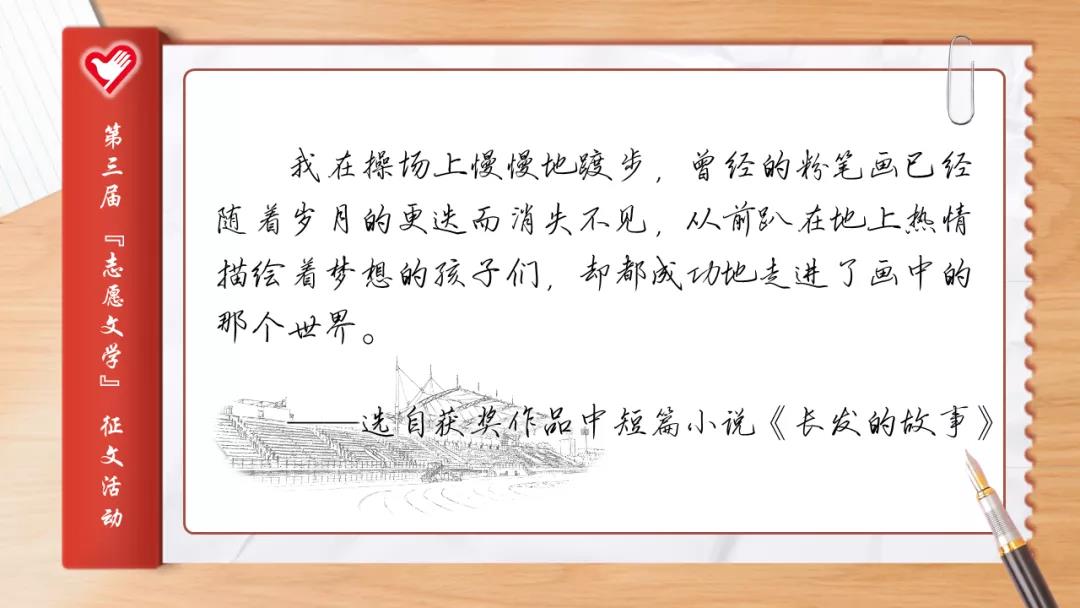 第三届『志愿文学』征文活动
我在操场上慢慢地踱步，曾经的粉笔画已经
随着岁月的更迭而消失不见，从前趴在地上热情
描绘着梦想的孩子们，却都成功地走进了画中的
那个世界。
——选自获奖作品中短篇小说《长发的故事》